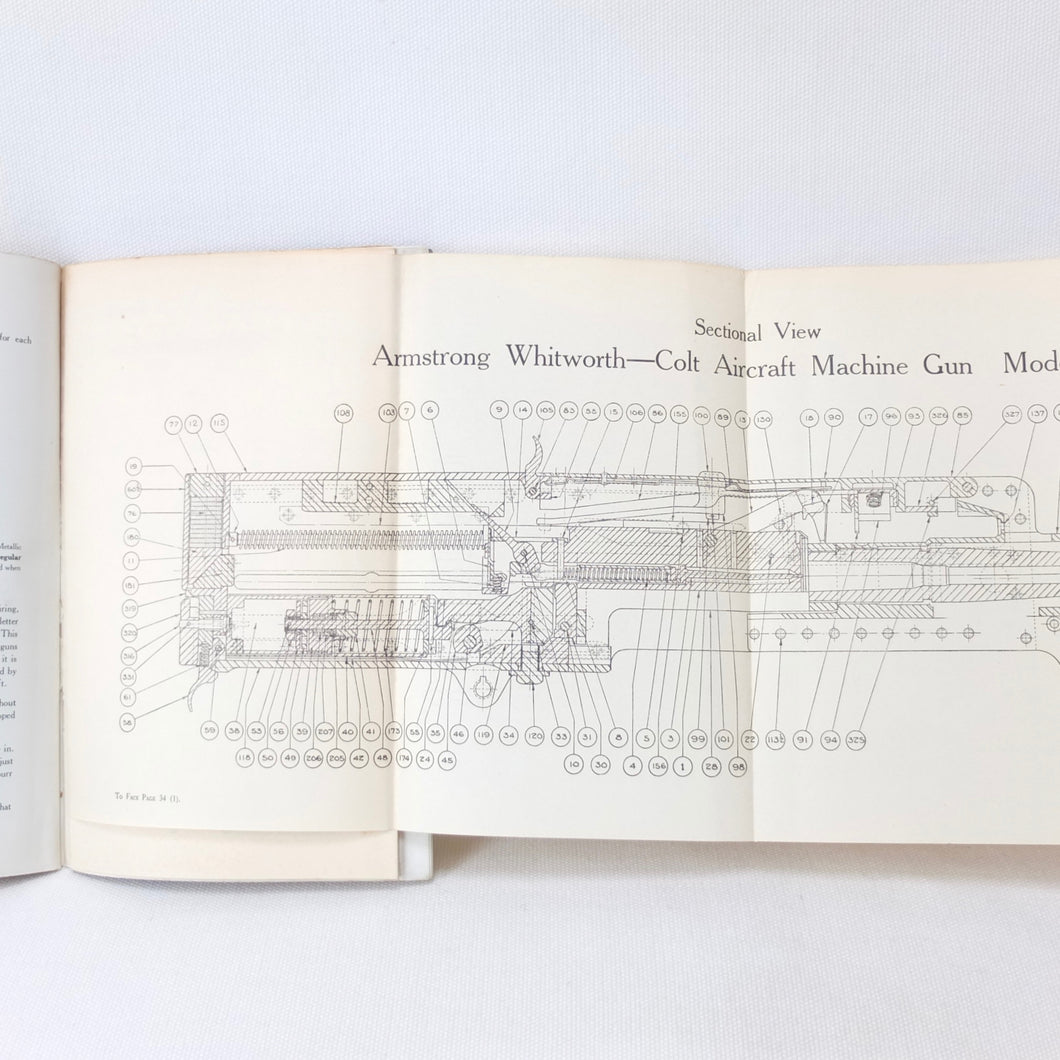 for each
Metallic
egular
d when
iring,
letter
This
guns
it is
d by
ft.
hout
oped
in.
just
ourr
hat
Sectional View
Armstrong Whitworth—Colt Aircraft Machine Gun Mode
77 12 115 108 103 7 6 9 14 105 83 15 106 86 155 100 89 13 150 18 90 17 96 93 326 85 327 137
19
76
180
11
181
319
320
316
331
61
58
59 38 53 56 39 207 40 41 173 55 35 46 119 34 120 33 31 8 5 3 99 101 22 91 94 325
118 50 49 206 205 42 48 174 24 45 10 30 4 156 1 28 98
To Face Page 34 (1).